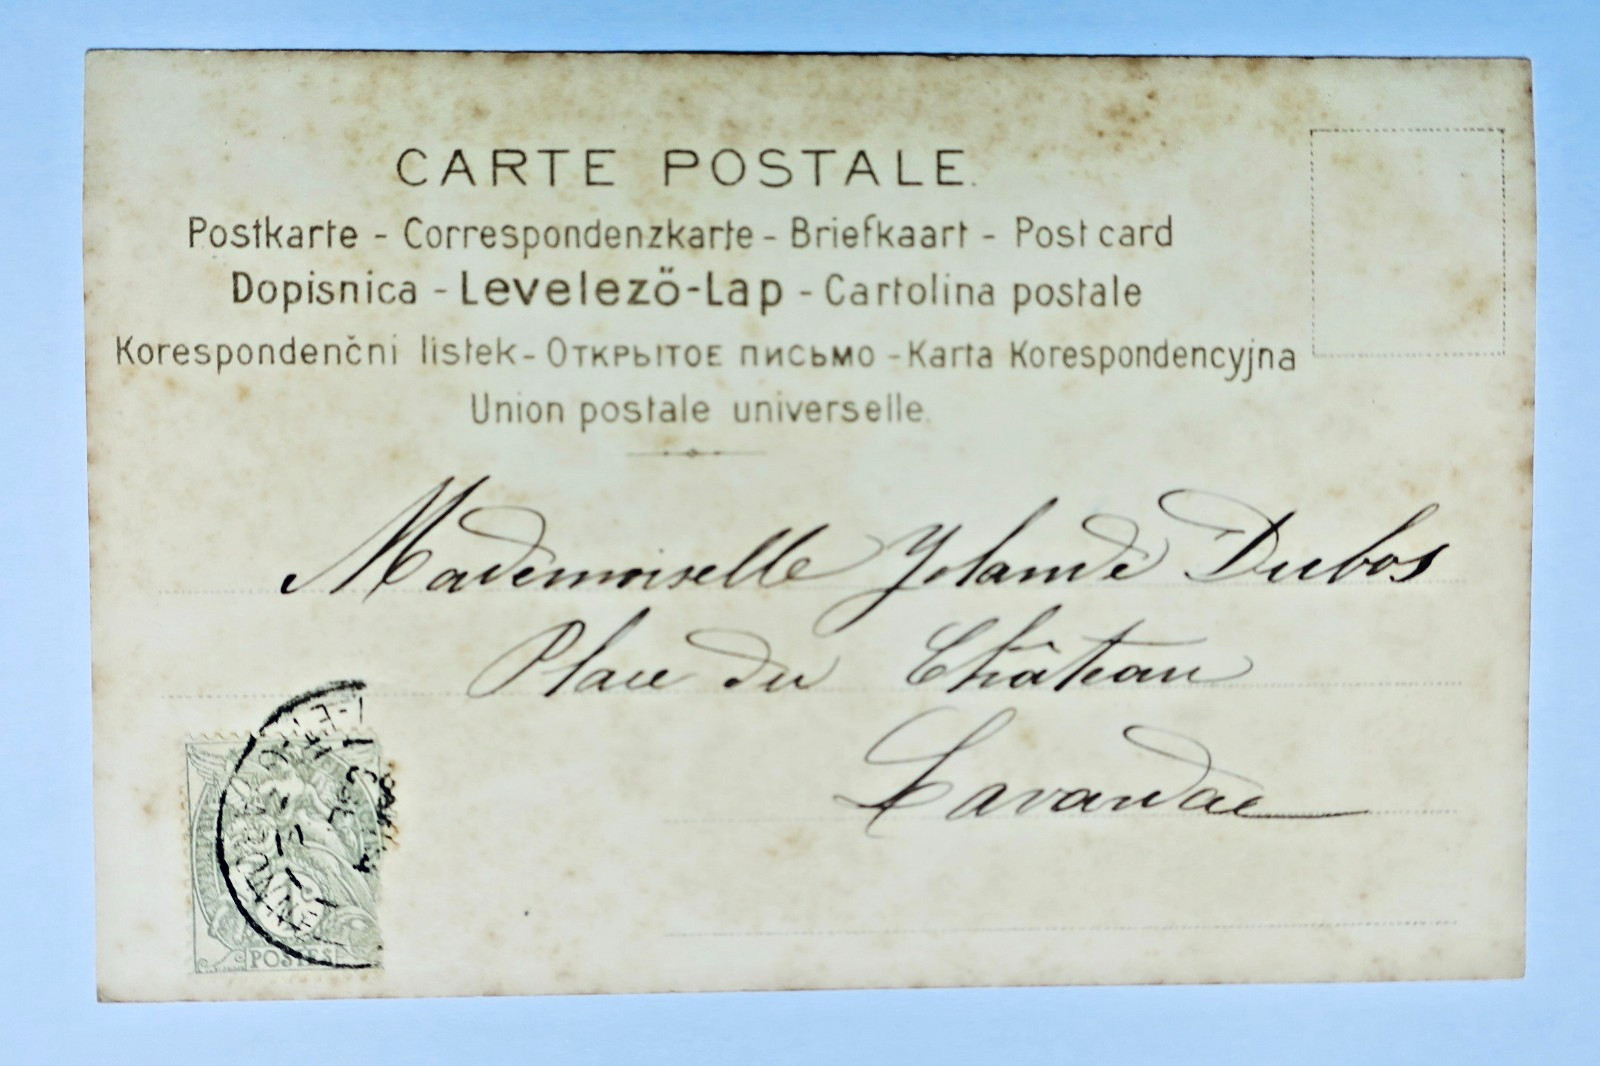 CARTE POSTALE.
Postkarte - Correspondenzkarte - Briefkaart - Post card
Dopisnica - Levelező-Lap - Cartolina postale
Korespondenčni listek - Открытое письмо - Karta Korespondencyjna
Union postale universelle.
Mademoiselle Yolande Dubos
Place du Château
Lavardac
POSTES